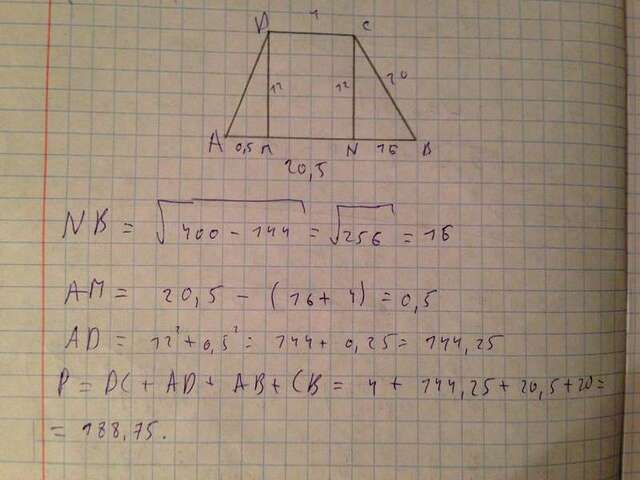 4
D C
12 12 20
A 0,5 M N 16 B
20,5
NB = √400 - 144 = √256 = 16
AM = 20,5 - (16 + 4) = 0,5
AD = 12² + 0,5² = 144 + 0,25 = 144,25
P = DC + AD + AB + CB = 4 + 144,25 + 20,5 + 20 =
= 188,75.